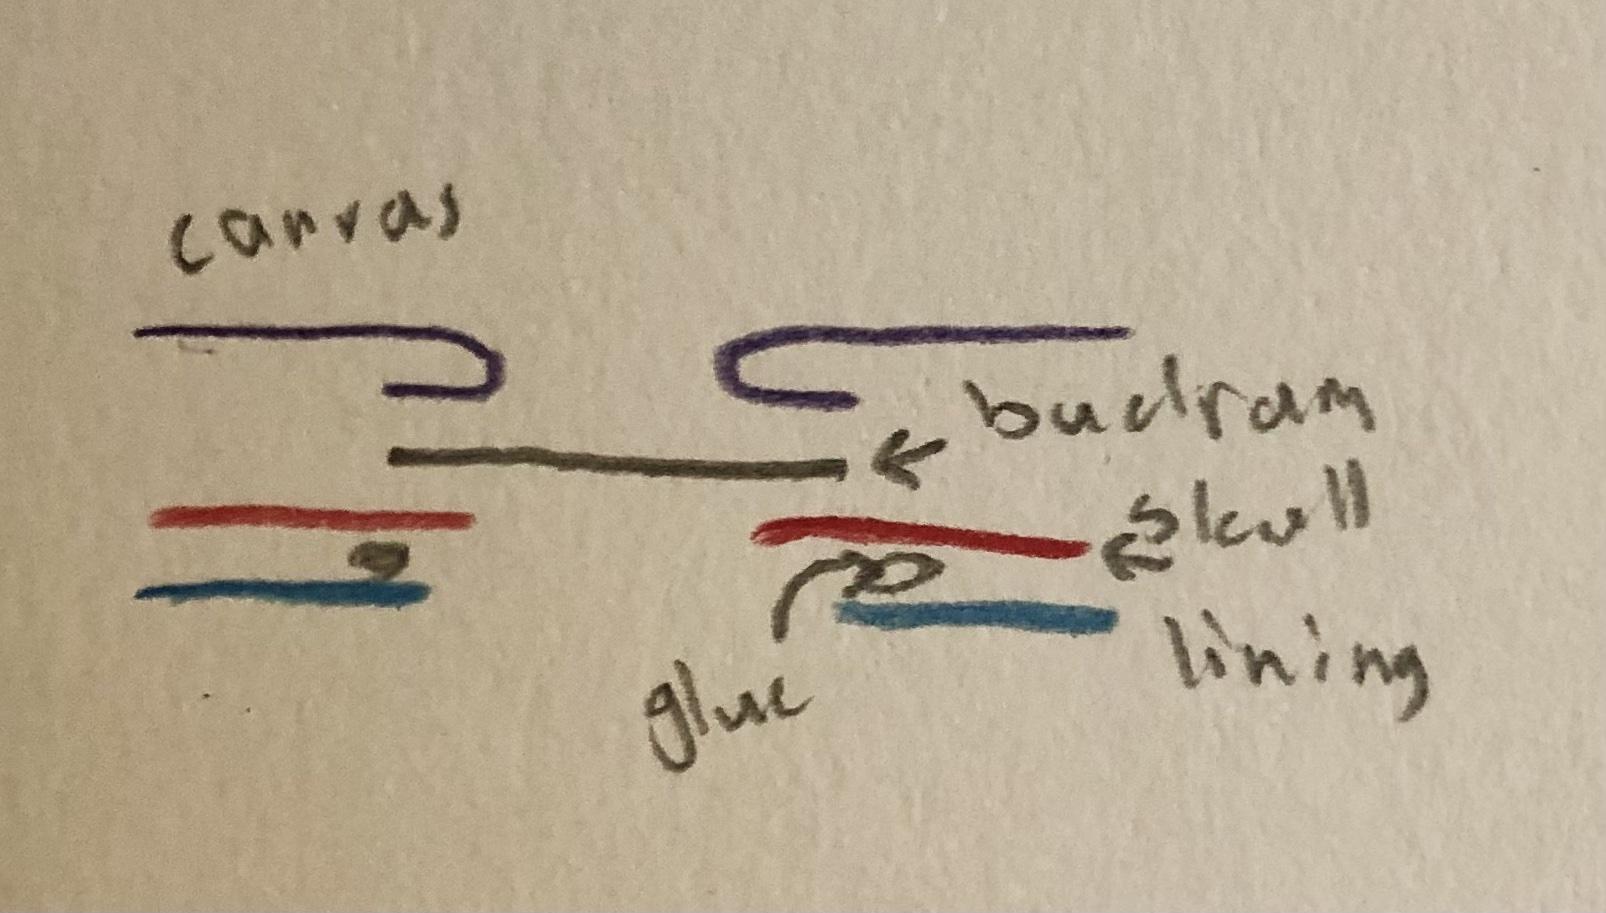 canvas
bucram
skull
lining
glue